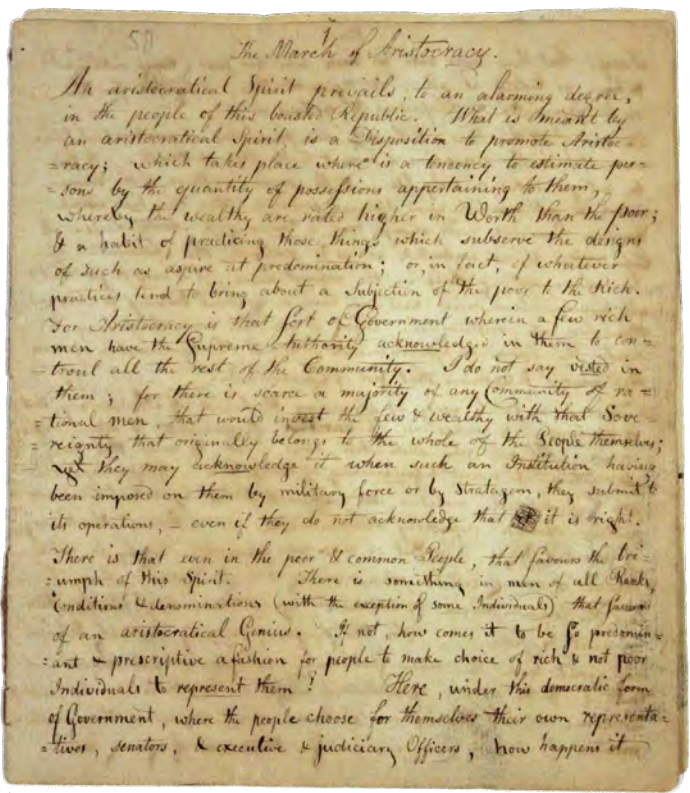 50
The March of Aristocracy.
An aristocratical Spirit prevails, to an alarming degree,
in the people of this boasted Republic. What is meant by
an aristocratical Spirit, is a Disposition to promote Aristoc-
=racy; which takes place where is a tendency to estimate per=
=sons by the quantity of possessions appertaining to them,
whereby the wealthy are rated higher in Worth than the poor;
& a habit of practicing those things which subserve the designs
of such as aspire at predomination; or, in fact, of whatever
practices tend to bring about a Subjection of the poor to the Rich.
For Aristocracy is that sort of Government wherein a few rich
men have the Supreme Authority acknowledged in them to con=
troul all the rest of the Community. I do not say vested in
them; for there is scarce a majority of any Community of ra=
=tional men, that would invest the few & wealthy with that Sove=
=reignty that originally belongs to the whole of the People themselves;
yet they may acknowledge it when such an Institution having
been imposed on them by military force or by Stratagem, they submit to
its operations, – even if they do not acknowledge that it is right.
There is that even in the poor & common People, that favours the tri=
=umph of this Spirit. There is something in men of all Ranks,
Conditions & denominations (with the exception of some Individuals) that favors
of an aristocratical Genius. If not, how comes it to be so predomin=
=ant & prescriptive a fashion for people to make choice of rich & not poor
Individuals to represent them? Here, under this democratic form
of Government, where the people choose for themselves their own representa=
=tives, senators, & executive & judiciary Officers, how happens it